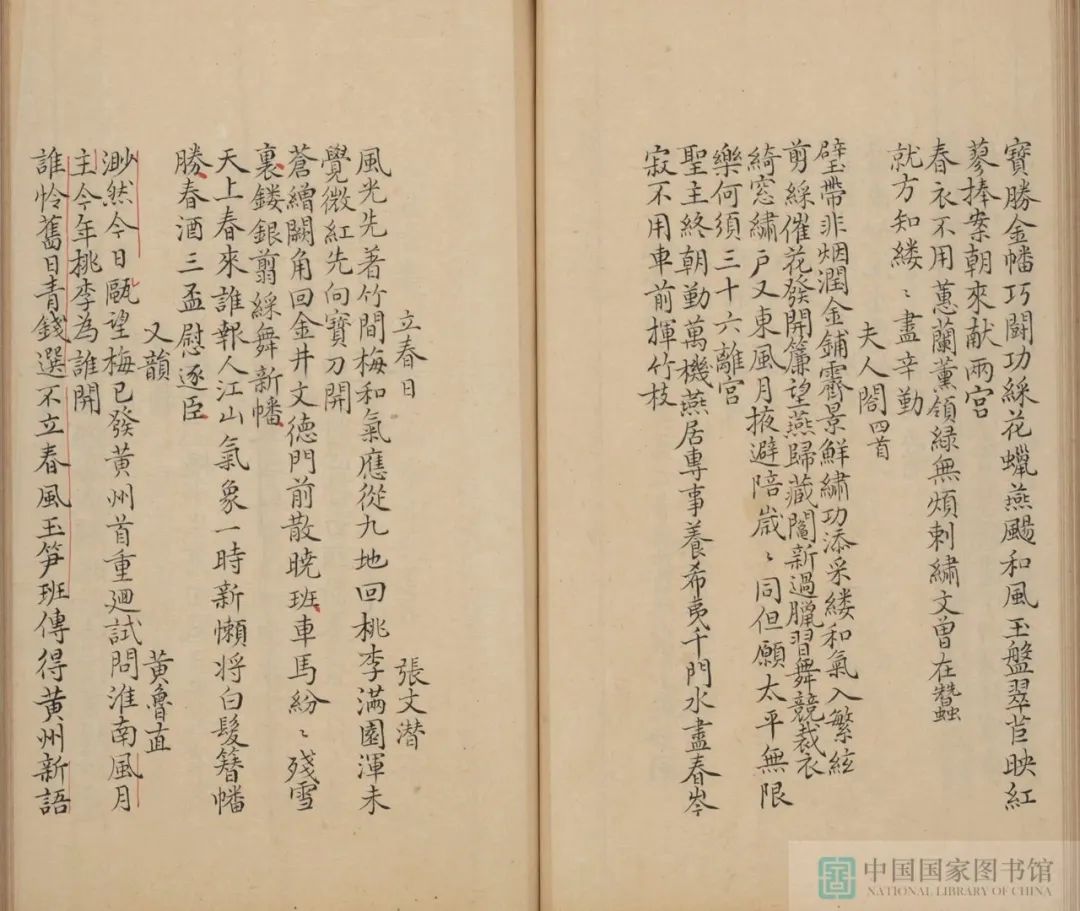 寳勝金幡巧鬪功綵花蠟燕颺和風玉盤翠苣映紅
蓼捧案朝來献兩宮
春衣不用蕙蘭薰領緑無煩刺繡文曽在蠶
就方知縷〻盡辛勤
夫人閤四首
璧帶非烟潤金鋪霽景鮮繡功添采縷和氣入繁絃
剪綵催花發開簾望燕歸藏鬮新過臘習舞競裁衣
綺窓繡户又東風月掖避陪歳〻同但願太平無限
樂何須三十六離宮
聖主終朝勤萬機燕居專事養希夷千門水盡春岑
寂不用車前揷竹枝
立春日
張文潜
風光先著竹間梅和氣應從九地回桃李满園渾未
覺微紅先向寳刀開
蒼繒闢角回金井文徳門前散曉班車馬紛〻殘雪
裏鏤銀翦綵舞新幡
天上春來誰報人江山氣象一時新懶将白髮簪幡
勝春酒三盃慰逐臣
又韻
黄魯直
渺然今日
望梅已發黄州首重廻試問淮南風月
主今年桃李為誰開
誰怜舊日青錢選不立春風玉笋班傳得黄州新語
中国国家图书馆
NATIONAL LIBRARY OF CHINA